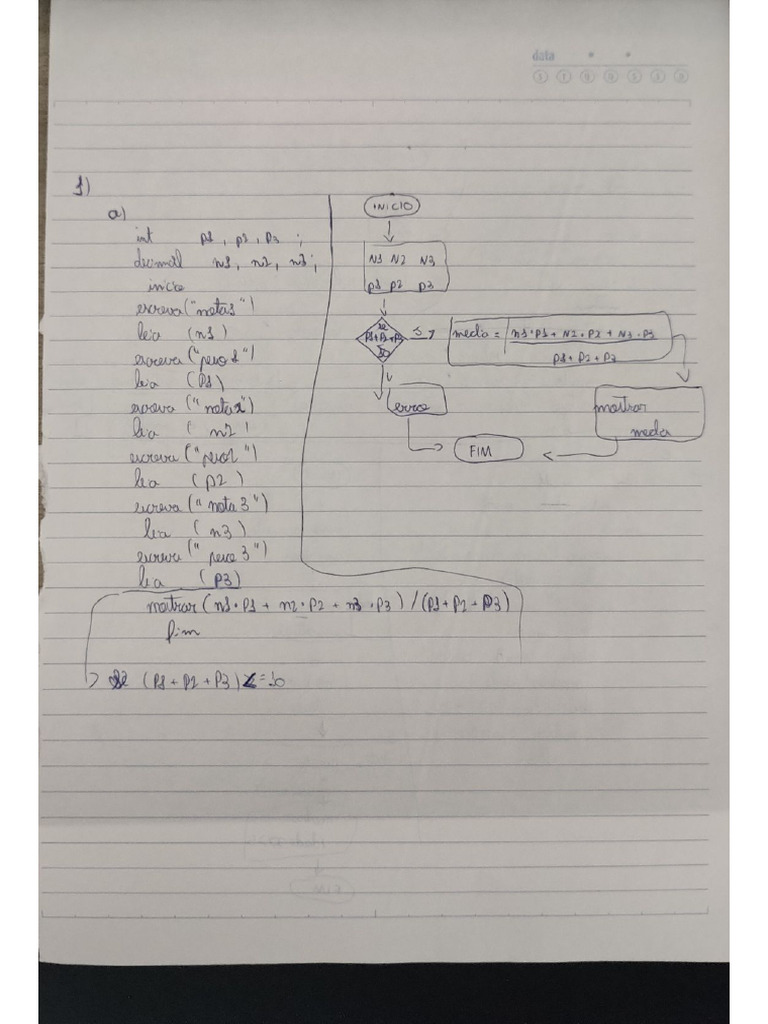 data
1)
a)
int p1, p2, p3;
decimal n1, n2, n3;
inicio
escreva("nota1")
leia (n1)
escreva("peso1")
leia (P1)
escreva ("nota2")
leia ( n2 )
escreva ("peso2")
leia (p2)
escreva ("nota 3")
leia (n3)
escreva (" peso 3")
leia (P3)
mostrar (n1 * P1 + n2 * P2 + n3 * P3) / (P1 + P2 + P3)
fim
se (P1 + P2 + P3) <= 10
INICIO
N1 N2 N3
p1 p2 p3
se
P1+P2+P3
10
S
media = n1 * P1 + N2 * P2 + N3 * P3
P1 + P2 + P3
erro
mostrar
media
FIM